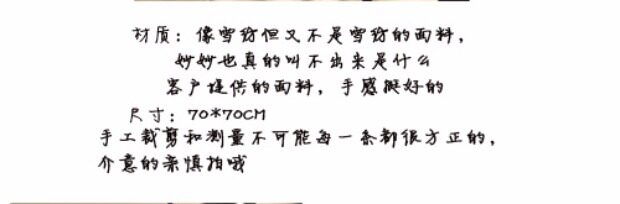 材质：像雪纺但又不是雪纺的面料，
妙妙也真的叫不出来是什么
客户提供的面料，手感挺好的
尺寸：70*70CM
手工裁剪和测量不可能每一条都很方正的，
介意的亲慎拍哦